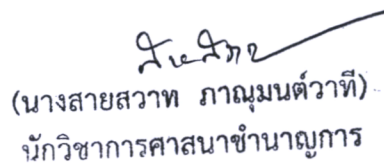 (นางสายสวาท ภาณุมนต์วาที)
นักวิชาการศาสนาชำนาญการ